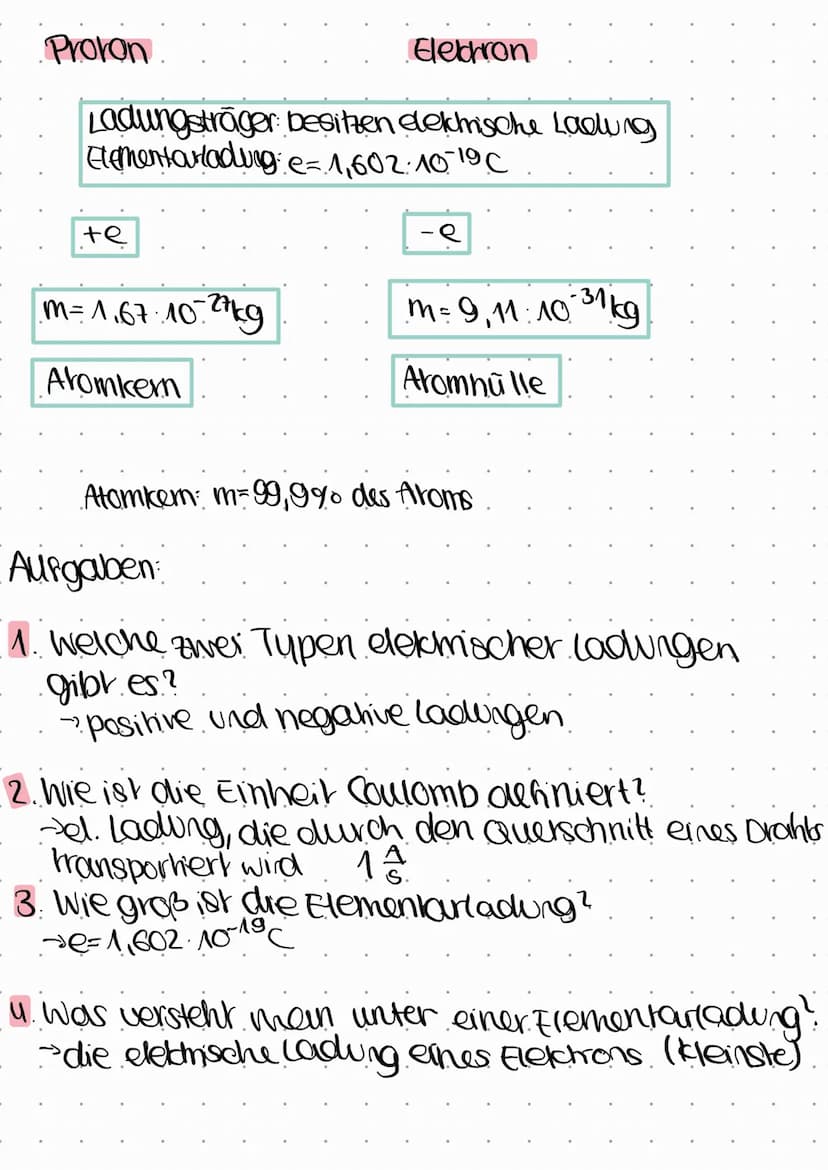 Proton Elektron
Ladungsträger: besitzen elektrische Ladung
Elementarladung: e = 1,602 · 10⁻¹⁹ C
+e -e
m = 1,67 · 10⁻²⁷ kg m = 9,11 · 10⁻³¹ kg
Atomkern Atomhülle
Atomkern: m = 99,9% des Atoms
Aufgaben:
1. Welche zwei Typen elektrischer Ladungen
gibt es?
→ positive und negative Ladungen
2. Wie ist die Einheit Coulomb definiert?
→ el. Ladung, die durch den Querschnitt eines Drahts
transportiert wird 1 A/s
3. Wie groß ist die Elementarladung?
→ e = 1,602 · 10⁻¹⁹ C
4. Was versteht man unter einer Elementarladung?
→ die elektrische Ladung eines Elektrons (kleinste)